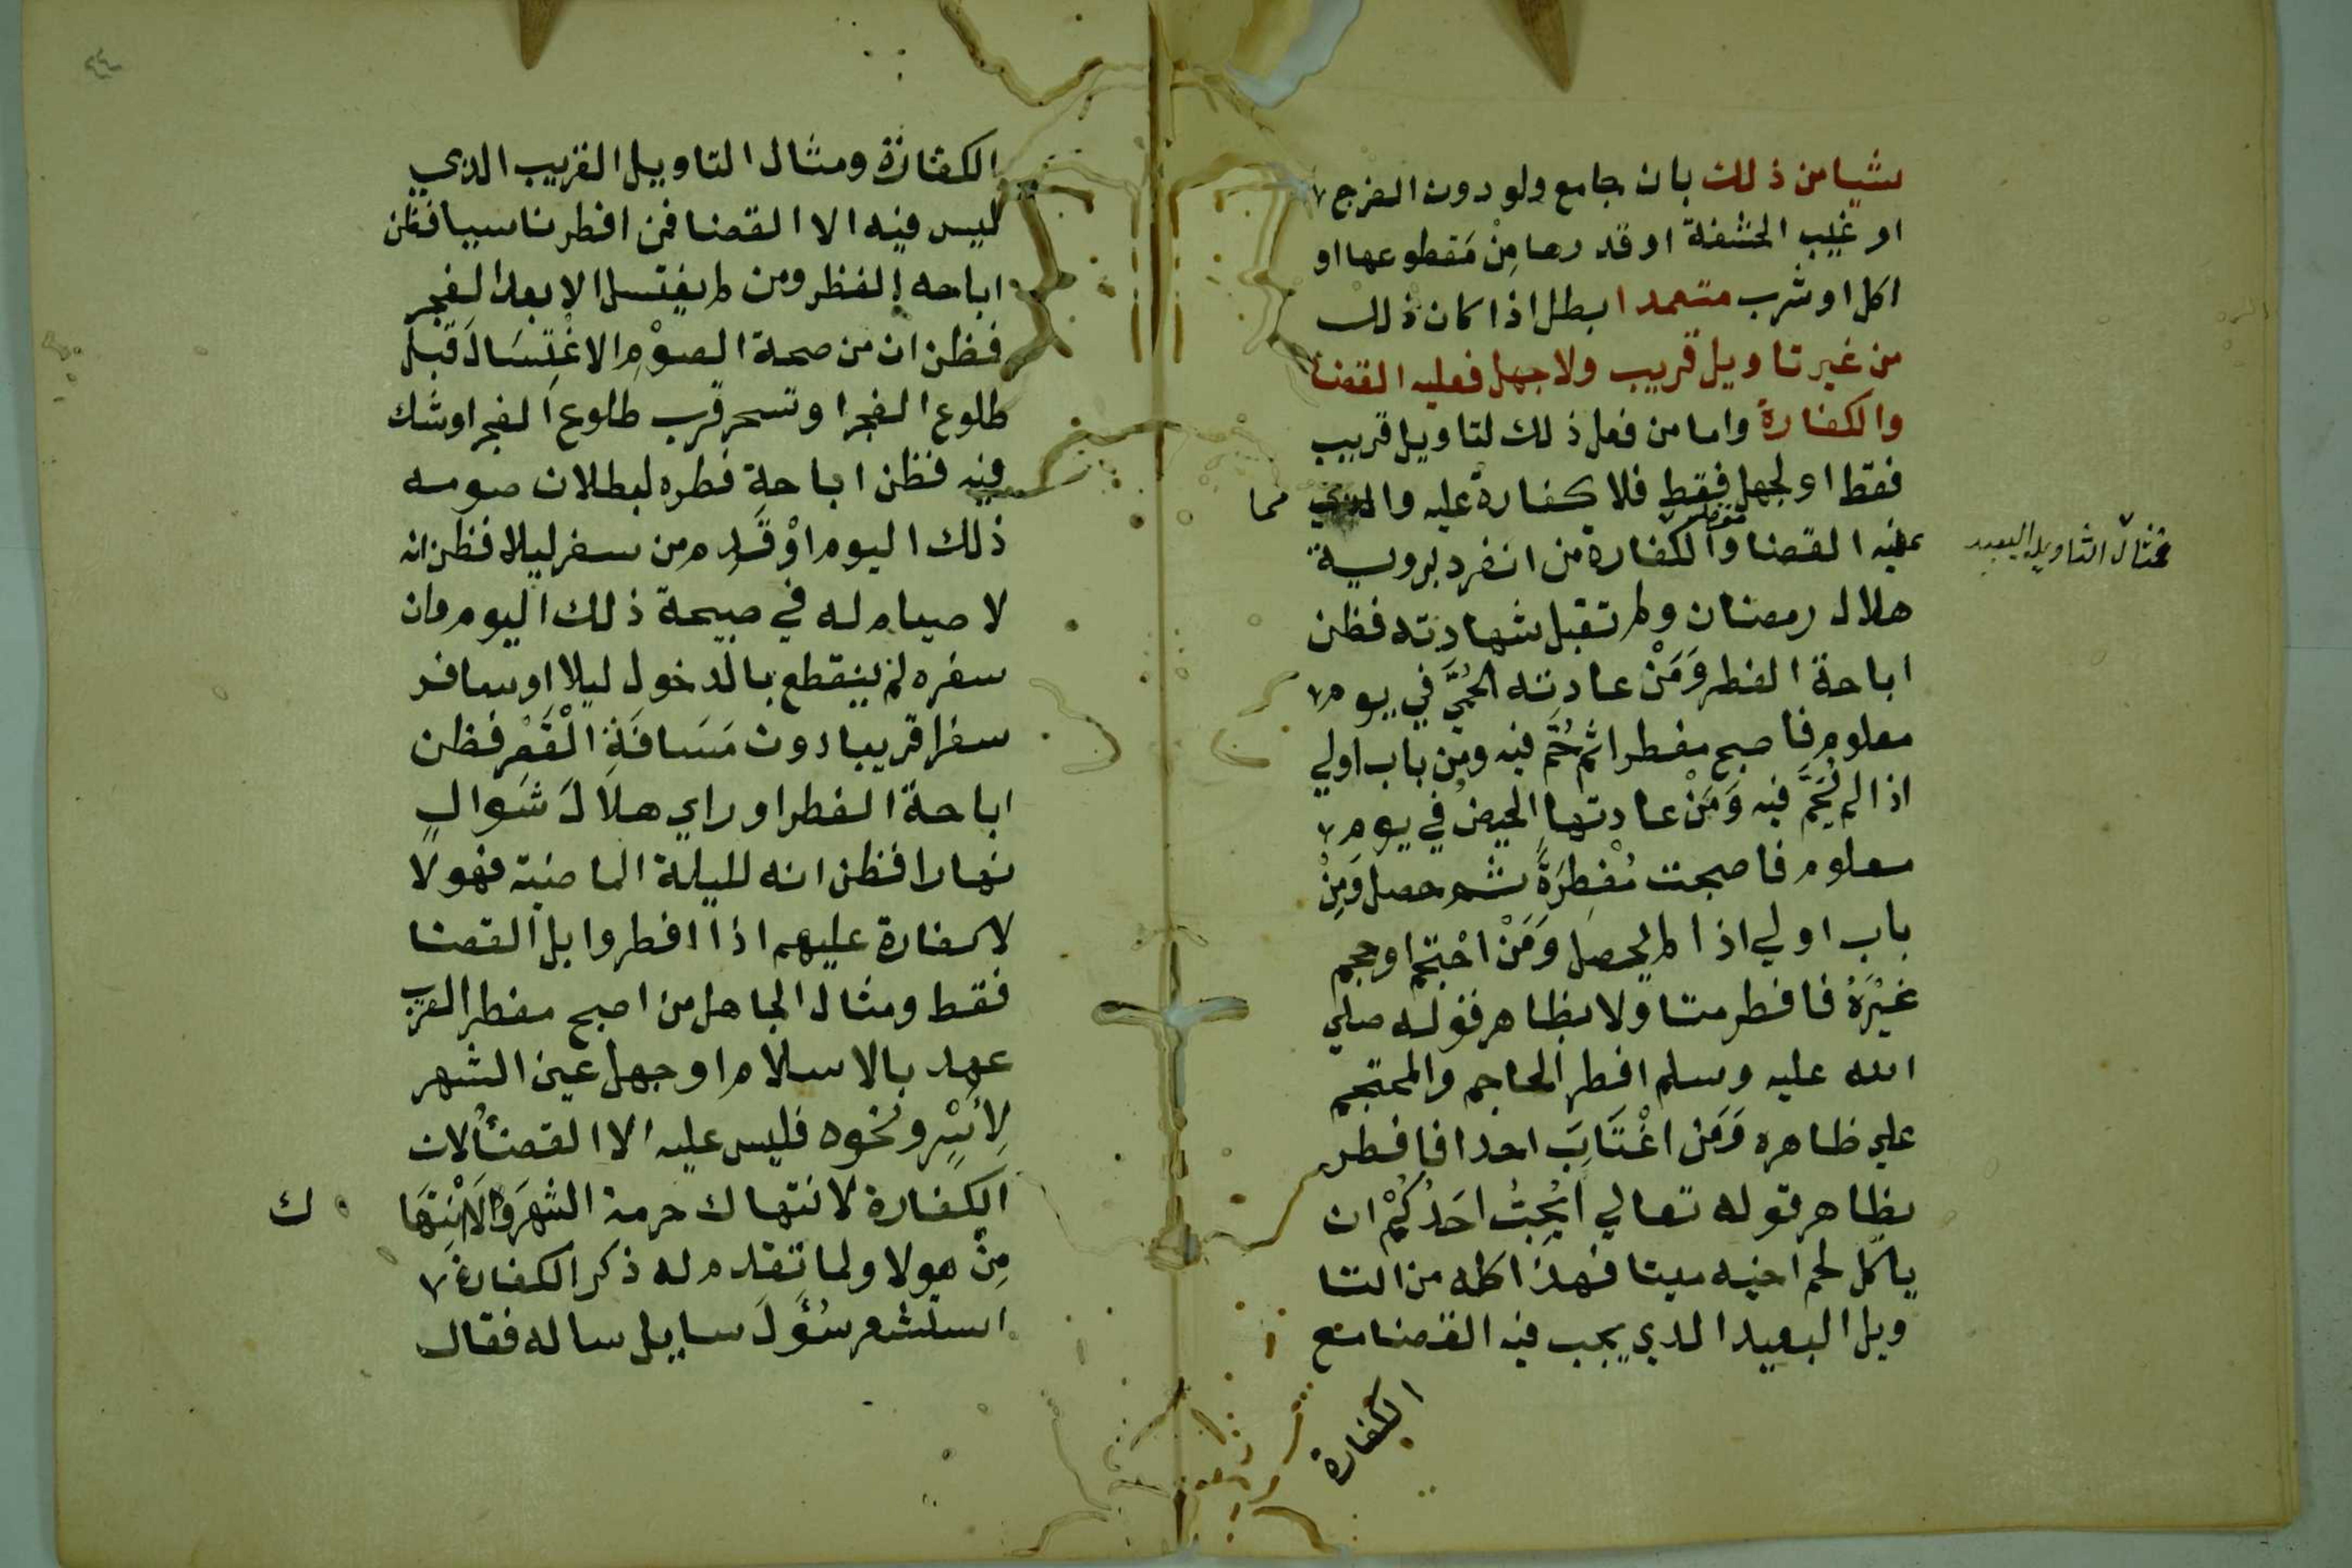 شيا من ذلك بان جامع ولو دون الفرج
او غيب الحشفة او قدرها مِنْ مَقطوعها او
اكل او شرب متعمدا بطل اذا كان ذلك
من غير تاويل قريب ولا جهل فعليه القضا
والكفارة واما من فعل ذلك لتاويل قريب
فقط او لجهل فقط فلا كفارة عليه والذي مما
عليه القضا والكفارة من انفرد بروية
فمثال التاويل البعيد
هلال رمضان ولم تقبل شهادته فظن
اباحة الفطر وَمَنْ عادته الحُمَّى في يوم
معلوم فاصبح مفطرا ثم حُمَّ فيه ومن باب اولي
اذا لم يُحَمَّ فيه وَمَنْ عادتها الحيض في يوم
معلوم فاصبحت مُفْطِرَةً ثم حصل وَمِنْ
باب اولي اذا لم يحصل وَمَنْ احْتجم او حجم
غيْرَهُ فافطر متاولا بظاهر قوله صلي
الله عليه وسلم افطر الحاجم والمحتجم
علي ظاهره وَمَن اغْتَابَ احدا فافطر
بظاهر قوله تعالي ايُحِبُّ احَدُكُمْ ان
ياكل لحم اخيه ميتا فهذا كله من التا
ويل البعيد الذي يجب فيه القضا مع
الكفارة
الكفارة ومثال التاويل القريب الذي
ليس فيه الا القضا فمن افطر ناسيا فظن
اباحه الفطر ومن لم يغتسل الا بعد الفجر
فظن ان من صحة الصوْمِ الاغْتِسَالَ قبل
طلوع الفجر او تسحر قرب طلوع الفجر او شك
فيه فظن اباحة فطره لبطلان صومه
ذلك اليوم اوْ قَدِم من سفر ليلا فظن انه
لا صيام له في صبيحة ذلك اليوم وان
سفره لم ينقطع بالدخول ليلا او سافر
سفرا قريبا دون مَسَافَةِ الْقَصْرِ فظن
اباحة الفطر او راي هلالَ شَوالٍ
نهارا فظن انه لليلة الماضية فهولا
لا كفارة عليهم اذا افطروا بل القضا
فقط ومثال الجاهل من اصبح مفطر القرب
عهد بالاسلام او جهل عين الشهر
لأَسْرٍ ونحوه فليس عليه الا القضا لان
الكفارة لانتهاك حرمة الشهر ولا انْتِهَا ك
مِنْ هولا ولما تقدم له ذكر الكفارة
استشعر سُؤَالَ سايل ساله فقال